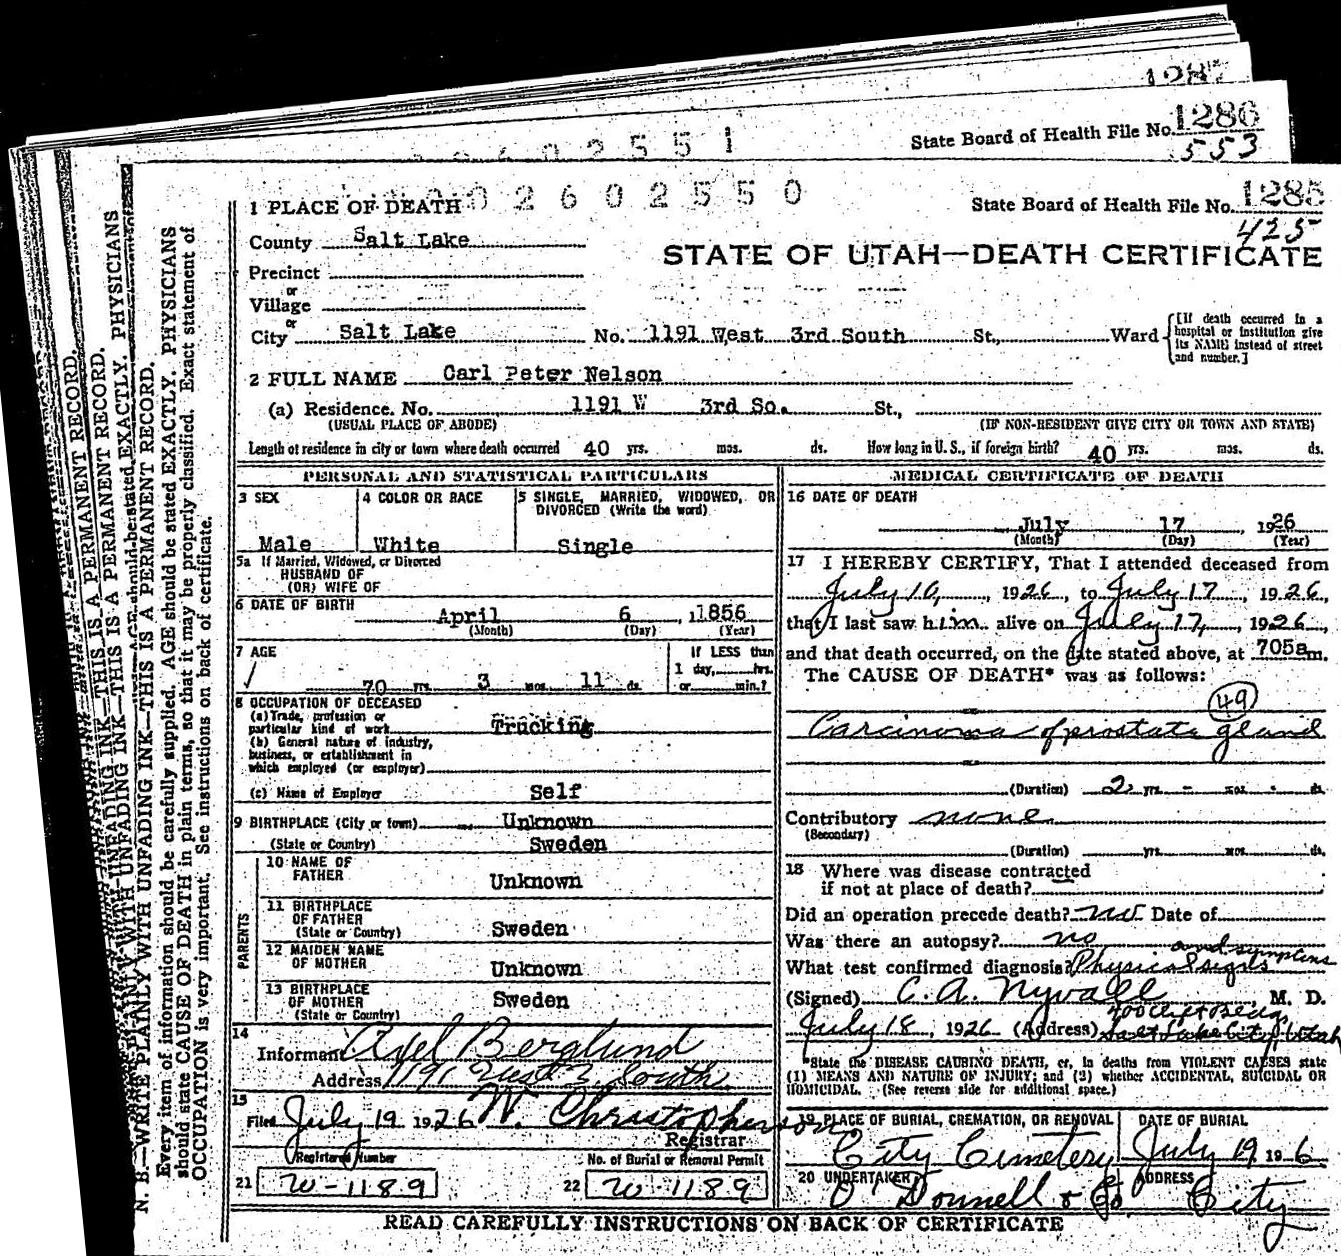 1287
State Board of Health File No. 1286
553
2602551
002602550
State Board of Health File No. 1285
425
STATE OF UTAH—DEATH CERTIFICATE
1 PLACE OF DEATH
County Salt Lake
Precinct
or
Village
or
City Salt Lake No. 1191 West 3rd South St., Ward
[If death occurred in a
hospital or institution give
its NAME instead of street
and number.]
2 FULL NAME Carl Peter Nelson
(a) Residence. No. 1191 W 3rd So. St.,
(USUAL PLACE OF ABODE) (IF NON-RESIDENT GIVE CITY OR TOWN AND STATE)
Length of residence in city or town where death occurred 40 yrs. mos. ds. How long in U. S., if foreign birth? 40 yrs. mos. ds.
PERSONAL AND STATISTICAL PARTICULARS
3 SEX
Male
4 COLOR OR RACE
White
5 SINGLE, MARRIED, WIDOWED, OR
DIVORCED (Write the word)
Single
5a If Married, Widowed, or Divorced
HUSBAND OF
(OR) WIFE OF
6 DATE OF BIRTH
April 6, 1856
(Month) (Day) (Year)
7 AGE
70 yrs. 3 mos. 11 ds.
If LESS than
1 day, hrs.
or min.?
8 OCCUPATION OF DECEASED
(a) Trade, profession or
particular kind of work Trucking
(b) General nature of industry,
business, or establishment in
which employed (or employer)
(c) Name of Employer Self
9 BIRTHPLACE (City or town) Unknown
(State or Country) Sweden
PARENTS
10 NAME OF
FATHER Unknown
11 BIRTHPLACE
OF FATHER
(State or Country) Sweden
12 MAIDEN NAME
OF MOTHER Unknown
13 BIRTHPLACE
OF MOTHER
(State or Country) Sweden
14
Informant Axel Berglund
Address 1191 West 3 South
15
Filed July 19 1926 W. Christopherson
Registrar
Registered Number
21 W-1189
No. of Burial or Removal Permit
22 W-1189
MEDICAL CERTIFICATE OF DEATH
16 DATE OF DEATH
July 17 1926
(Month) (Day) (Year)
17 I HEREBY CERTIFY, That I attended deceased from
July 10, 1926, to July 17, 1926,
that I last saw him alive on July 17, 1926,
and that death occurred, on the date stated above, at 705a m.
The CAUSE OF DEATH* was as follows:
49
Carcinoma of prostate gland
(Duration) 2 yrs. - mos. - ds.
Contributory none
(Secondary)
(Duration) yrs. mos. ds.
18 Where was disease contracted
if not at place of death?
Did an operation precede death? no Date of
Was there an autopsy? no
What test confirmed diagnosis? Physical signs and symptoms
(Signed) C. A. Nyvall, M. D.
July 18, 1926 (Address) Salt Lake City Utah
*State the DISEASE CAUSING DEATH, or, in deaths from VIOLENT CAUSES state
(1) MEANS AND NATURE OF INJURY; and (2) whether ACCIDENTAL, SUICIDAL OR
HOMICIDAL. (See reverse side for additional space.)
19 PLACE OF BURIAL, CREMATION, OR REMOVAL
City Cemetery
DATE OF BURIAL
July 19 19 6
20 UNDERTAKER
O Donnell & Co
ADDRESS
City
READ CAREFULLY INSTRUCTIONS ON BACK OF CERTIFICATE
N. B.—WRITE PLAINLY WITH UNFADING INK—THIS IS A PERMANENT RECORD.
Every item of information should be carefully supplied. AGE should be stated EXACTLY. PHYSICIANS
should state CAUSE OF DEATH in plain terms, so that it may be properly classified. Exact statement of
OCCUPATION is very important. See instructions on back of certificate.
UNFADING INK—THIS IS A PERMANENT RECORD.
stated EXACTLY. PHYSICIANS